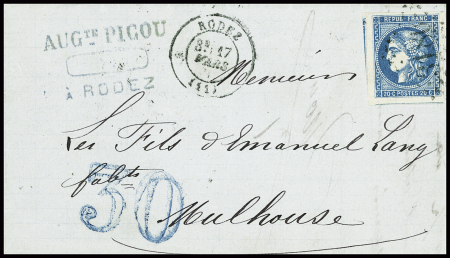 AUG^TE PIGOU
À RODEZ
RODEZ
3E 17
MARS
(11)
REPUB FRANC
20 C POSTES 20 C
Messieurs
Les Fils d'Emanuel Lang
fabts
Mulhouse
30